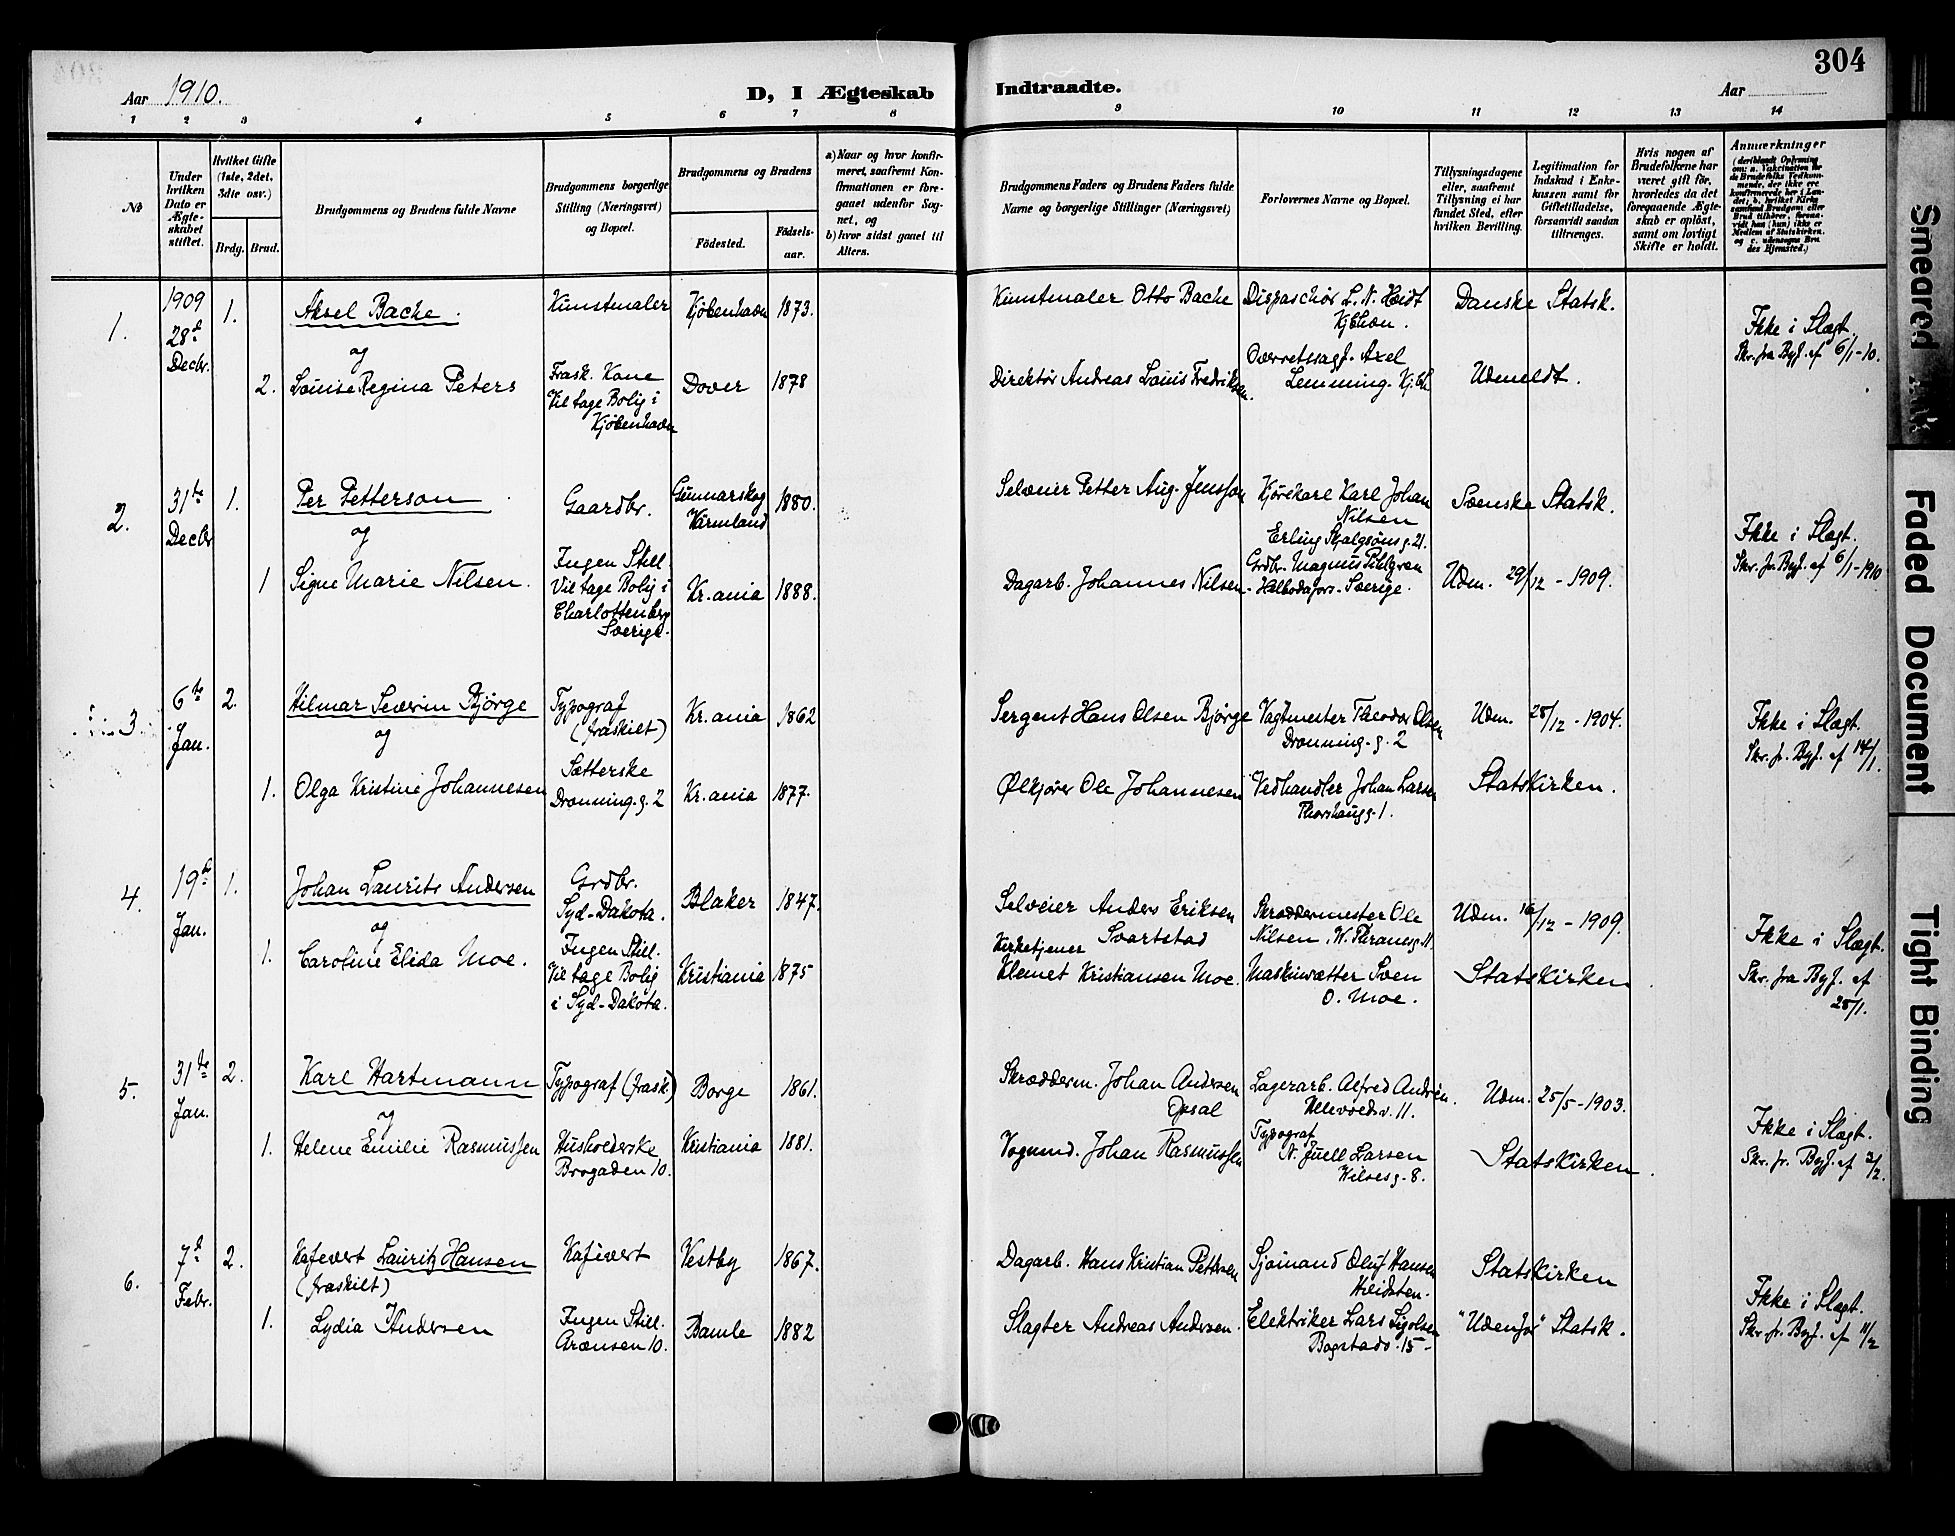 304
Aar 1910.
D, I Ægteskab Indtraadte.
Aar
1 2 3 4 5 6 7 8 9 10 11 12 13 14
№
Under hvilken Dato er Ægteskabet stiftet.
Hvilket Gifte (1ste, 2det, 3die osv.)
Brdg. Brud.
Brudgommens og Brudens fulde Navne
Brudgommens borgerlige Stilling (Næringsvei) og Bopæl.
Brudgommens og Brudens
Födested.
Födselsaar.
a) Naar og hvor konfirmeret, saafremt Konfirmationen er foregaaet udenfor Sognet, og
b) hvor sidst gaaet til Alters.
Brudgommens Faders og Brudens Faders fulde Navne og borgerlige Stillinger (Næringsvei)
Forlovernes Navne og Bopæl.
Tillysningsdagene eller, saafremt Tillysning ei har fundet Sted, efter hvilken Bevilling.
Legitimation for Indskud i Enkekassen samt for Giftetilladelse, forsaavidt saadan tiltrænges.
Hvis nogen af Brudefolkene har været gift før, hvorledes da det foregaaende Ægteskab er opløst, samt om lovligt Skifte er holdt.
Anmærkninger
1.
1909
28d
Decbr.
1.
Aksel Bache.
Kunstmaler
Kjöbenhavn
1873.
Kunstmaler Otto Bache
Dispaschör L. N. Hvidt
Kjbhvn.
Danske Statsk.
Ikke i Slægt.
Skr. fra Byf. af 6/1-10.
og
2.
Louise Regina Peters
Frask. Kone
Vil tage Bolig i
Kjöbenhavn
Dover
1878
Direktör Andreas Louis Fredriksen.
Overretssagf. Axel
Lemming. Kjbh
Udmeldt.
2.
31te
Decbr
1.
Per Petterson
Gaardbr.
Gunnarskog
Värmland
1880.
Selveier Petter Aug. Jensson
Kjörekarl Karl Johan
Nilsen
Erling Skjalgsönsg. 21.
Svenske Statsk.
Ikke i Slægt.
Skr. fr. Byf. af 6/1-1910
og
1
Signe Marie Nilsen.
Ingen Still.
Vil tage Bolig i
Charlottenberg
Sverige.
Kr.ania
1888.
Dagarb. Johannes Nilsen
Grdbr. Magnus Pihlgren
Sverige.
Udm. 29/12 - 1909.
3.
6te
Jan.
2.
Hilmar Severin Björge
Typograf
(fraskilt)
Kr.ania
1862
Sergent Hans Olsen Björge
Vagtmester Theodor Olsen
Dronning. g. 2
Udm. 28/12 - 1904.
Ikke i Slægt.
Skr. fr. Byf. af 14/1.
og
1.
Olga Kristine Johannesen
Sætterske
Dronning. g. 2
Kr.ania
1877.
Ölkjörer Ole Johannesen
Vedhandler Johan Larsen
Thorshaugg. 1.
Statskirken.
4.
19de
Jan.
1.
Johan Laurits Andersen
Grdbr.
Syd-Dakota.
Blaker
1847.
Selveier Anders Eriksen
Svartstad
Skræddermester Ole
Nilsen. W. Thranesg. 11.
Udm. 16/12 - 1909.
Ikke i Slægt.
Skr. fra Byf. af
25/1.
og
1.
Caroline Elida Moe.
Ingen Still.
Vil tage Bolig
i Syd-Dakota.
Kristiania
1875
Kirketjener
Klemet Kristiansen Moe.
Maskinsætter Sven
O. Moe.
Statskirken
5.
31te
Jan.
2.
Karl Hartmann
Typograf (frask.)
Borge
1861.
Skrædderm. Johan Andersen
Opsal
Lagerarb. Alfred Andrén.
Udm. 25/5 - 1903.
Ikke i Slægt.
Skr. fr. Byf. af 2/2.
og
1.
Helene Emilie Rasmussen
Husholderske
Brogaden 10.
Kristiania
1881.
Vognmd. Johan Rasmussen
Typograf
N. Juell Larsen
Nilsesg. 8.
Statskirken.
6.
7d
Febr.
2.
Kafevert Lauritz Hansen
(fraskilt)
Kafévert
Vestby
1867.
Dagarb. Hans Kristian Pettersen
Sjömand Oluf Hansen
Statskirken
Ikke i Slægt.
Skr. fr. Byf. af 11/2
1.
Lydia Andersen
Ingen Still.
Arensen 10.
Bamle
1882
Slagter Andreas Andersen.
Elektriker Lars
Bogstadv. 15-
"Udenfor" Statsk.
Smeared Ink
Faded Document
Tight Binding